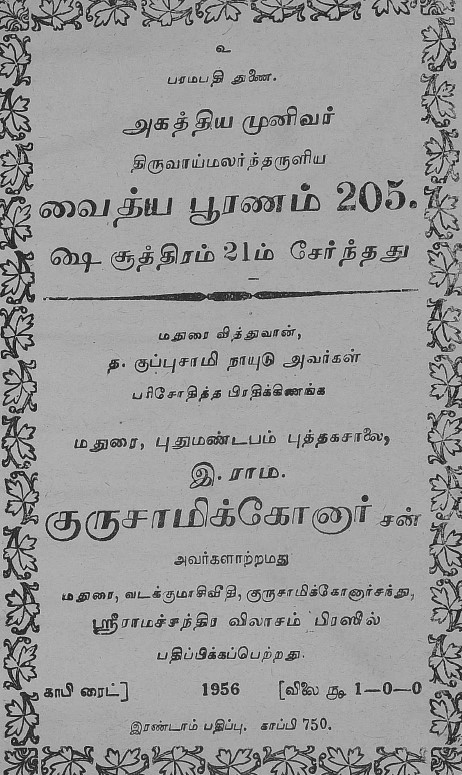 உ
பரமபதி துணை.
அகத்திய முனிவர்
திருவாய்மலர்ந்தருளிய
வைத்ய பூரணம் 205.
ஷை சூத்திரம் 21ம் சேர்ந்தது
மதுரை வித்துவான்,
த. குப்புசாமி நாயுடு அவர்கள்
பரிசோதித்த பிரதிக்கிணங்க
மதுரை, புதுமண்டபம் புத்தகசாலை,
இ. ராம.
குருசாமிக்கோனார் சன்
அவர்களாற்றமது
மதுரை, வடக்குமாசிவீதி, குருசாமிக்கோனார்சந்து,
ஸ்ரீராமச்சந்திர விலாசம் பிரஸில்
பதிப்பிக்கப்பெற்றது.
காபி ரைட்] 1956 [விலை ரூ 1—0—0
இரண்டாம் பதிப்பு. காப்பி 750.